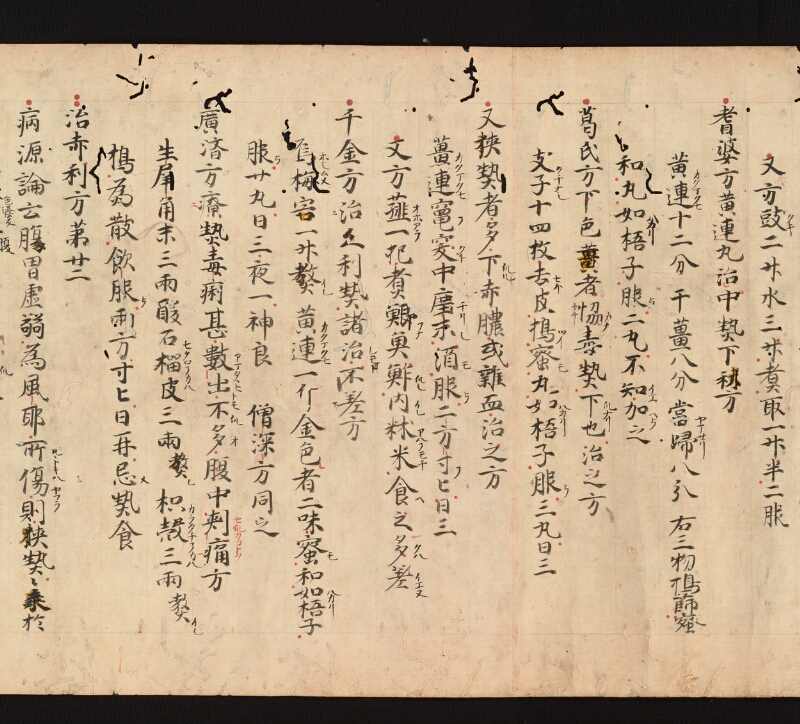 又方豉二升水三升煮取一升半二服
耆婆方黄連丸治中熱下利方
黄連十二分干薑八分當歸八分右三物搗篩蜜
和丸如梧子服二丸不知加之
葛氏方下色黄者協毒熱下也治之方
支子十四枚去皮搗蜜丸如梧子服三丸日三
又挾熱者多下赤膿或雜血治之方
黄連竈突中塵末酒服二方寸匕日三
又方薤一把煮鯽魚鮓内秫米食之多差
千金方治久利熱諸治不差方
烏梅宍一升熬黄連一斤金色者二味蜜和如梧子
服廿丸日三夜一神良 僧深方同之
廣済方療熱毒痢甚數出不多腹中刺痛方
生犀角末三兩酸石榴皮三兩熬枳殼三兩熬
搗為散飲服兩方寸匕日再忌熱食
治赤利方第廿二
病源論云腸胃虚弱為風耶所傷則挾熱〻乘於